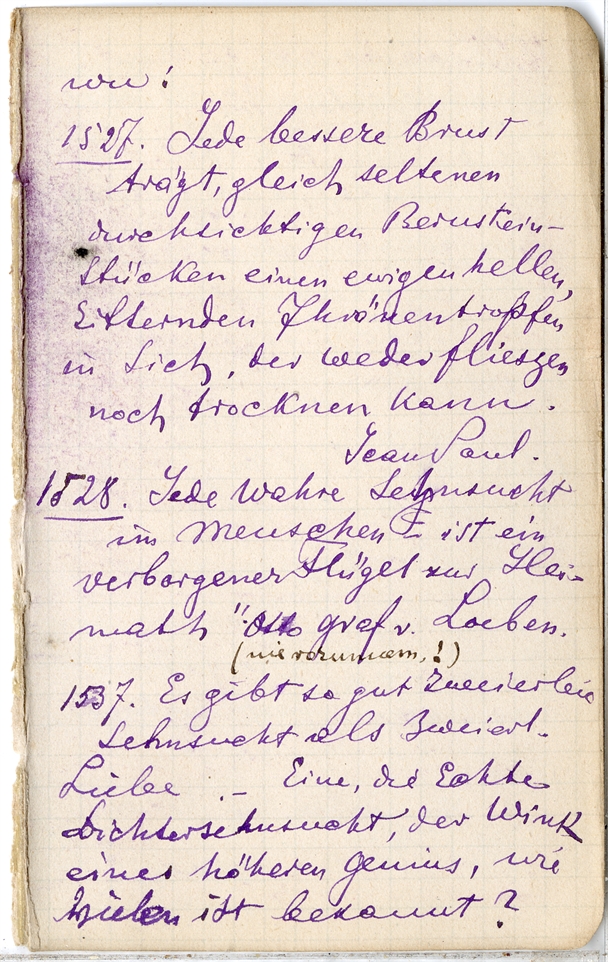 wu!
1527. Jede bessere Brust
trägt, gleich seltenen
durchsichtigen Bernstein-
Stücken einen ewigen hellen,
zitternden Thränentropfen
in Sich, der weder fliessen
noch trocknen kann.
Jean Paul.
1528. Jede Wahre Sehnsucht
im Menschen ist ein
verborgener Flügel zur Hei-
math" Otto graf v. Loeben.
1537. Es gibt so gut Zweierlei
Sehnsucht als Zweierl.
Liebe. – Eine, die Echte
Dichtersehnsucht, der Wink
eines höheren Genius, wie
Vielen ist bekannt?